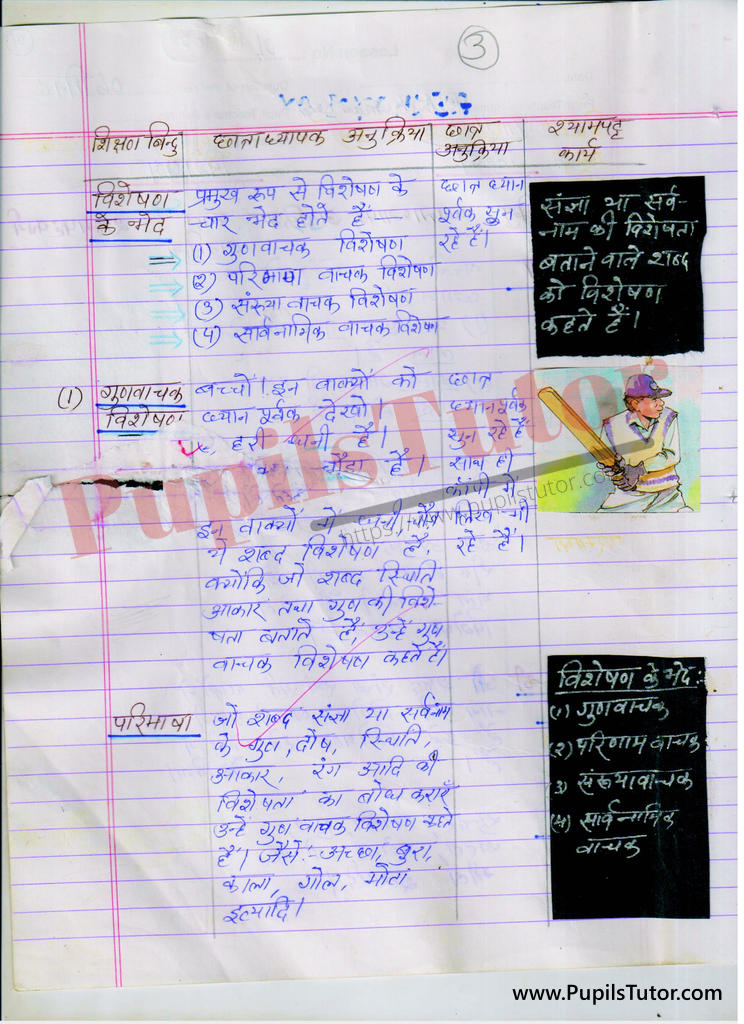 3
शिक्षण बिन्दु
छात्राध्यापक अनुक्रिया
छात्र
अनुक्रिया
श्यामपट्ट
कार्य
विशेषण
के भेद
प्रमुख रूप से विशेषण के
चार भेद होते हैं
(1) गुणवाचक विशेषण
(2) परिमाण वाचक विशेषण
(3) संख्या वाचक विशेषण
(4) सार्वनामिक वाचक विशेषण
छात्र ध्यान
पूर्वक सुन
रहे हैं।
संज्ञा या सर्व-
नाम की विशेषता
बताने वाले शब्द
को विशेषण
कहते हैं।
(1) गुणवाचक
विशेषण
बच्चों! इन वाक्यों को
ध्यान पूर्वक देखो।
हरी है।
चौड़ा है।
इन वाक्यों में
ये शब्द विशेषण हैं,
क्योंकि जो शब्द स्थिति
आकार तथा गुण की विशे-
षता बताते हैं, उन्हें गुण
वाचक विशेषण कहते हैं।
छात्र
ध्यानपूर्वक
सुन रहे हैं
साथ ही
कॉपी में
लिख भी
रहे हैं।
परिभाषा
जो शब्द संज्ञा या सर्वनाम
के गुण, दोष, स्थिति,
आकार, रंग आदि की
विशेषता का बोध कराएँ
उन्हें गुण वाचक विशेषण कहते
हैं। जैसे:- अच्छा, बुरा,
काला, गोल, मोटा
इत्यादि।
विशेषण के भेद:-
(1) गुणवाचक
(2) परिणाम वाचक
(3) संख्यावाचक
(4) सार्वनामिक
वाचक
PupilsTutor
https://www.pupilstutor.com
www.PupilsTutor.com